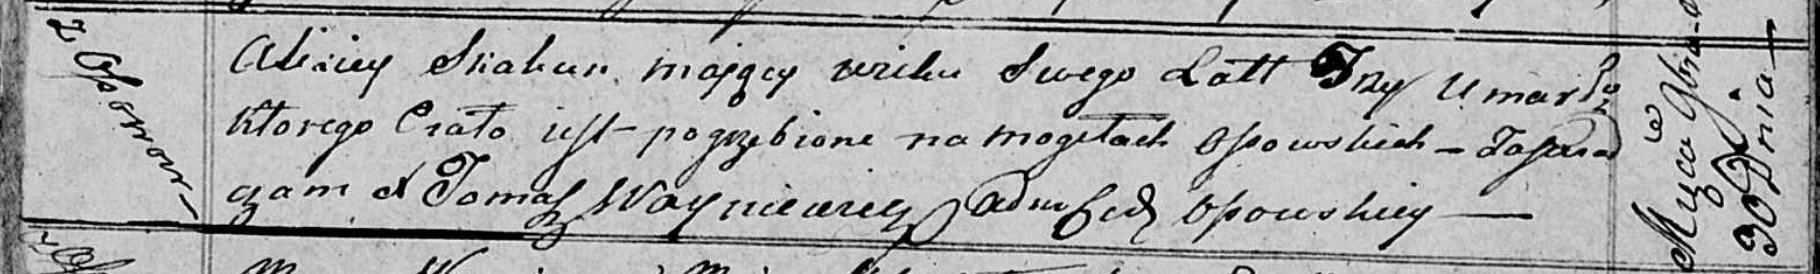 z Osowa
Alexiey Skakun mający wieku Swego Latt Trzy Umarł
Ktorego Ciało iest pogrzebione na mogiłach Osowskich – Zaświad
czam X Tomasz Woyniewicz Adm Osowskiey —
30 Dnia